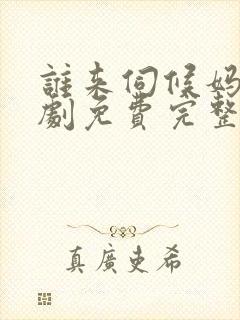 誰来伺候妈
劇免費完整
真廣史希